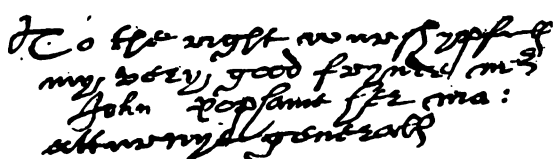 To the right wurshypfull
my, very, good frynde mr
John popham Esqr ma:
atturnye generall